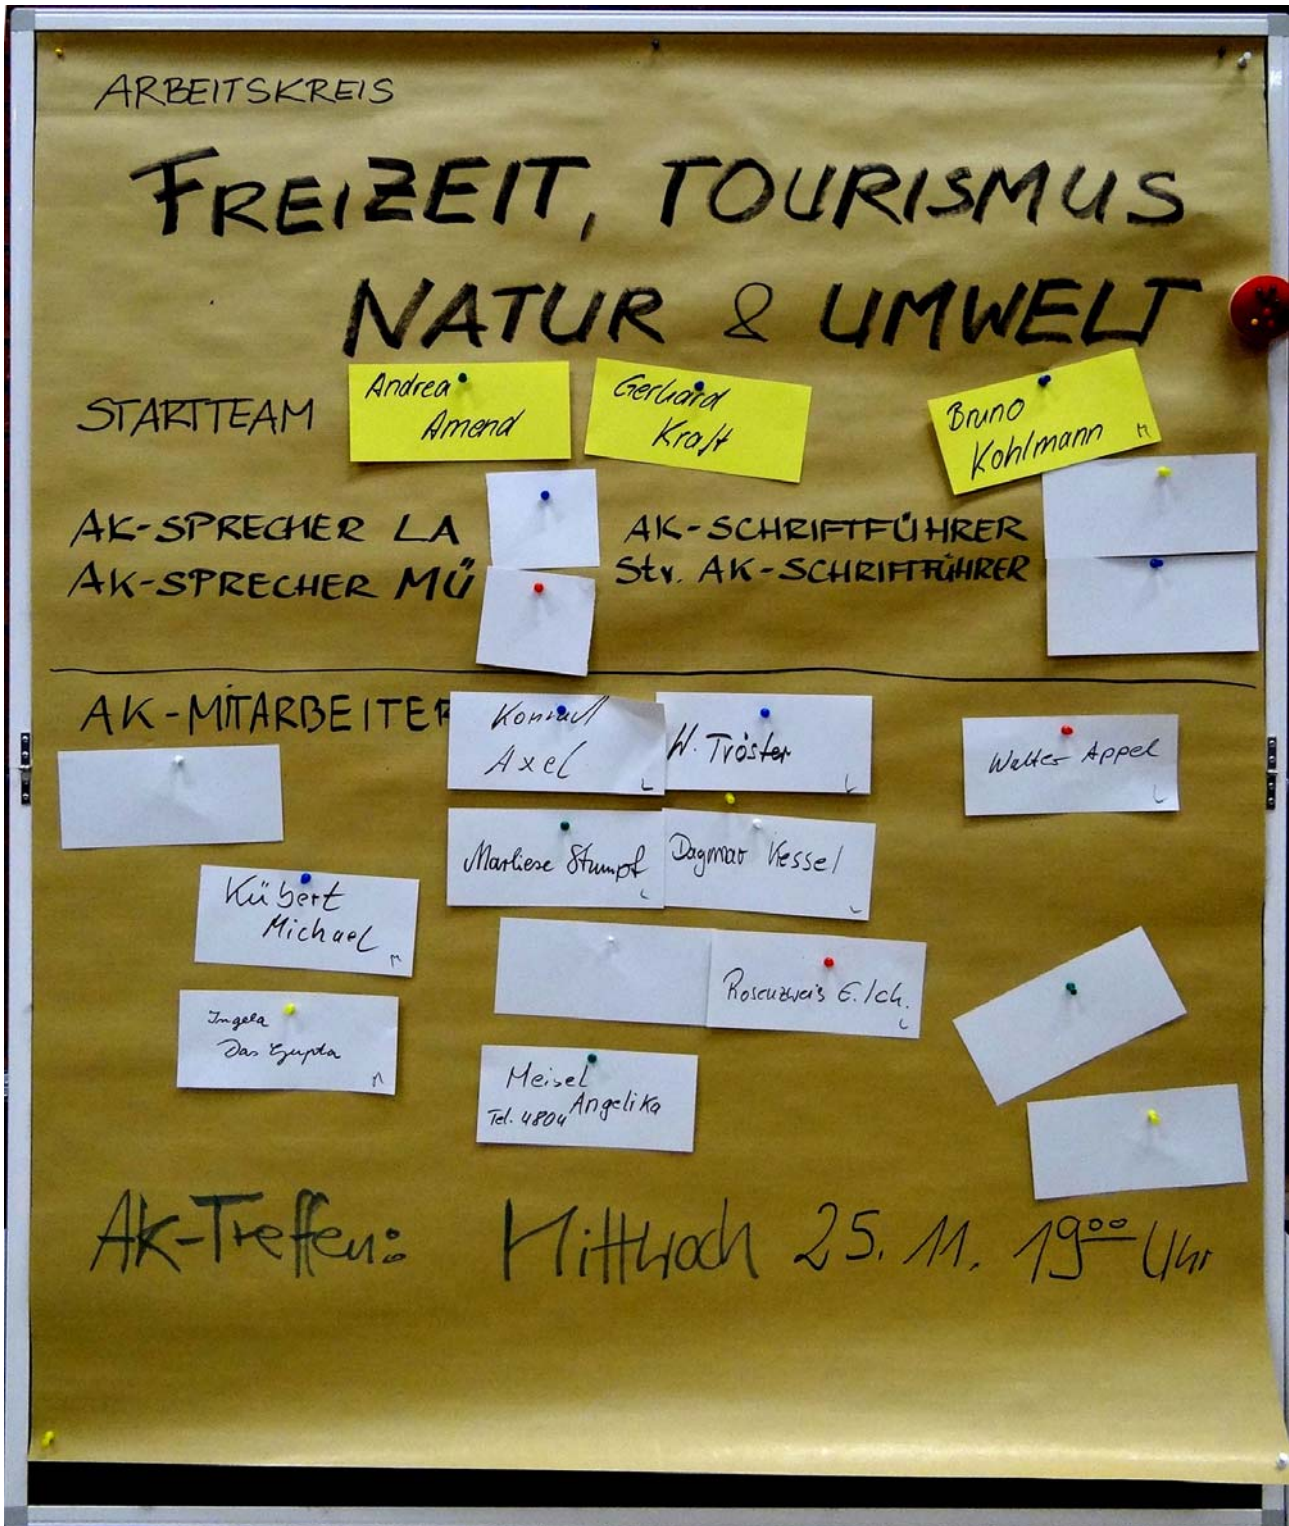 ARBEITSKREIS
FREIZEIT, TOURISMUS
NATUR & UMWELT
STARTTEAM
Andrea
Amend
Gerhard
Kraft
Bruno
Kohlmann
M
AK-SPRECHER LA
AK-SPRECHER MÜ
AK-SCHRIFTFÜHRER
Stv. AK-SCHRIFTFÜHRER
AK-MITARBEITER
Konrad
Axel
L
W. Tröster
L
Walter Appel
L
Marliese Stumpf
L
Dagmar Kessel
L
Kübert
Michael
M
Rosenzweig E. / Ch.
L
Ingela
Das Gupta
M
Meisel
Angelika
Tel. 4804
AK-Treffen: Mittwoch 25. 11. 19⁰⁰ Uhr